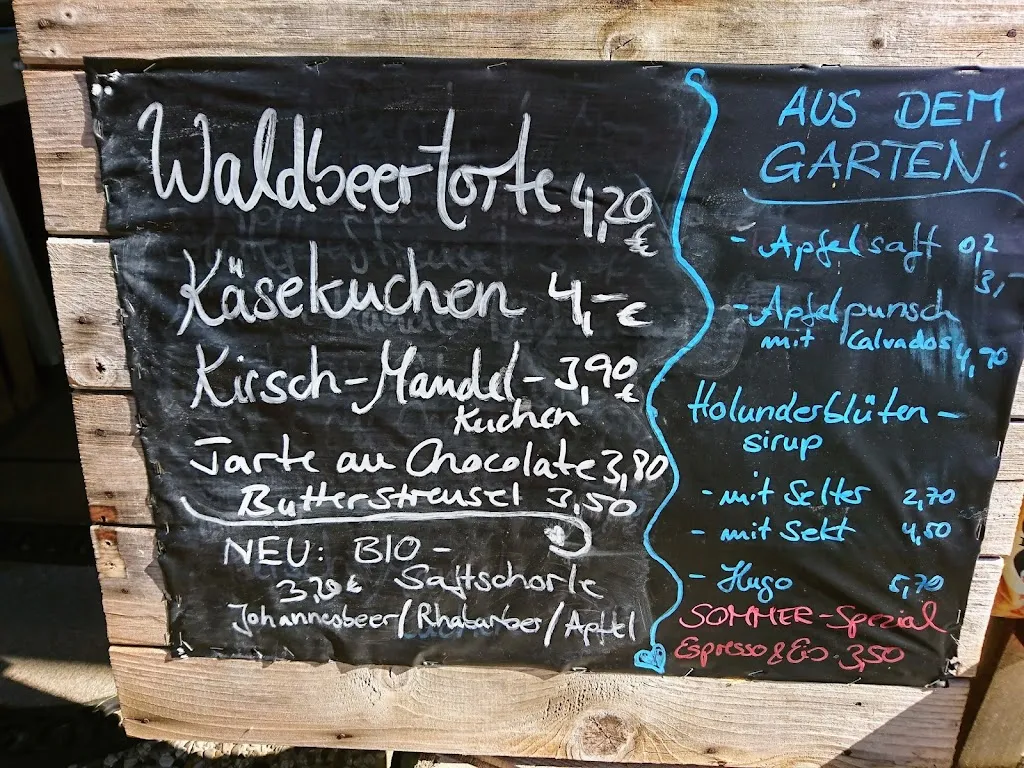 Waldbeertorte 4,20 €
Käsekuchen 4,- €
Kirsch-Mandel- 3,90 €
kuchen
Tarte au Chocolate 3,80
Butterstreusel 3,50
NEU: BIO-
3,70 € Saftschorle
Johannesbeer/Rhabarber/Apfel
AUS DEM
GARTEN:
- Apfelsaft 0,2
3,-
- Apfelpunsch
mit Calvados 4,90
Holunderblüten-
sirup
- mit Selter 2,70
- mit Sekt 4,50
- Hugo 5,70
SOMMER-Spezial
Espresso & Eis 3,50